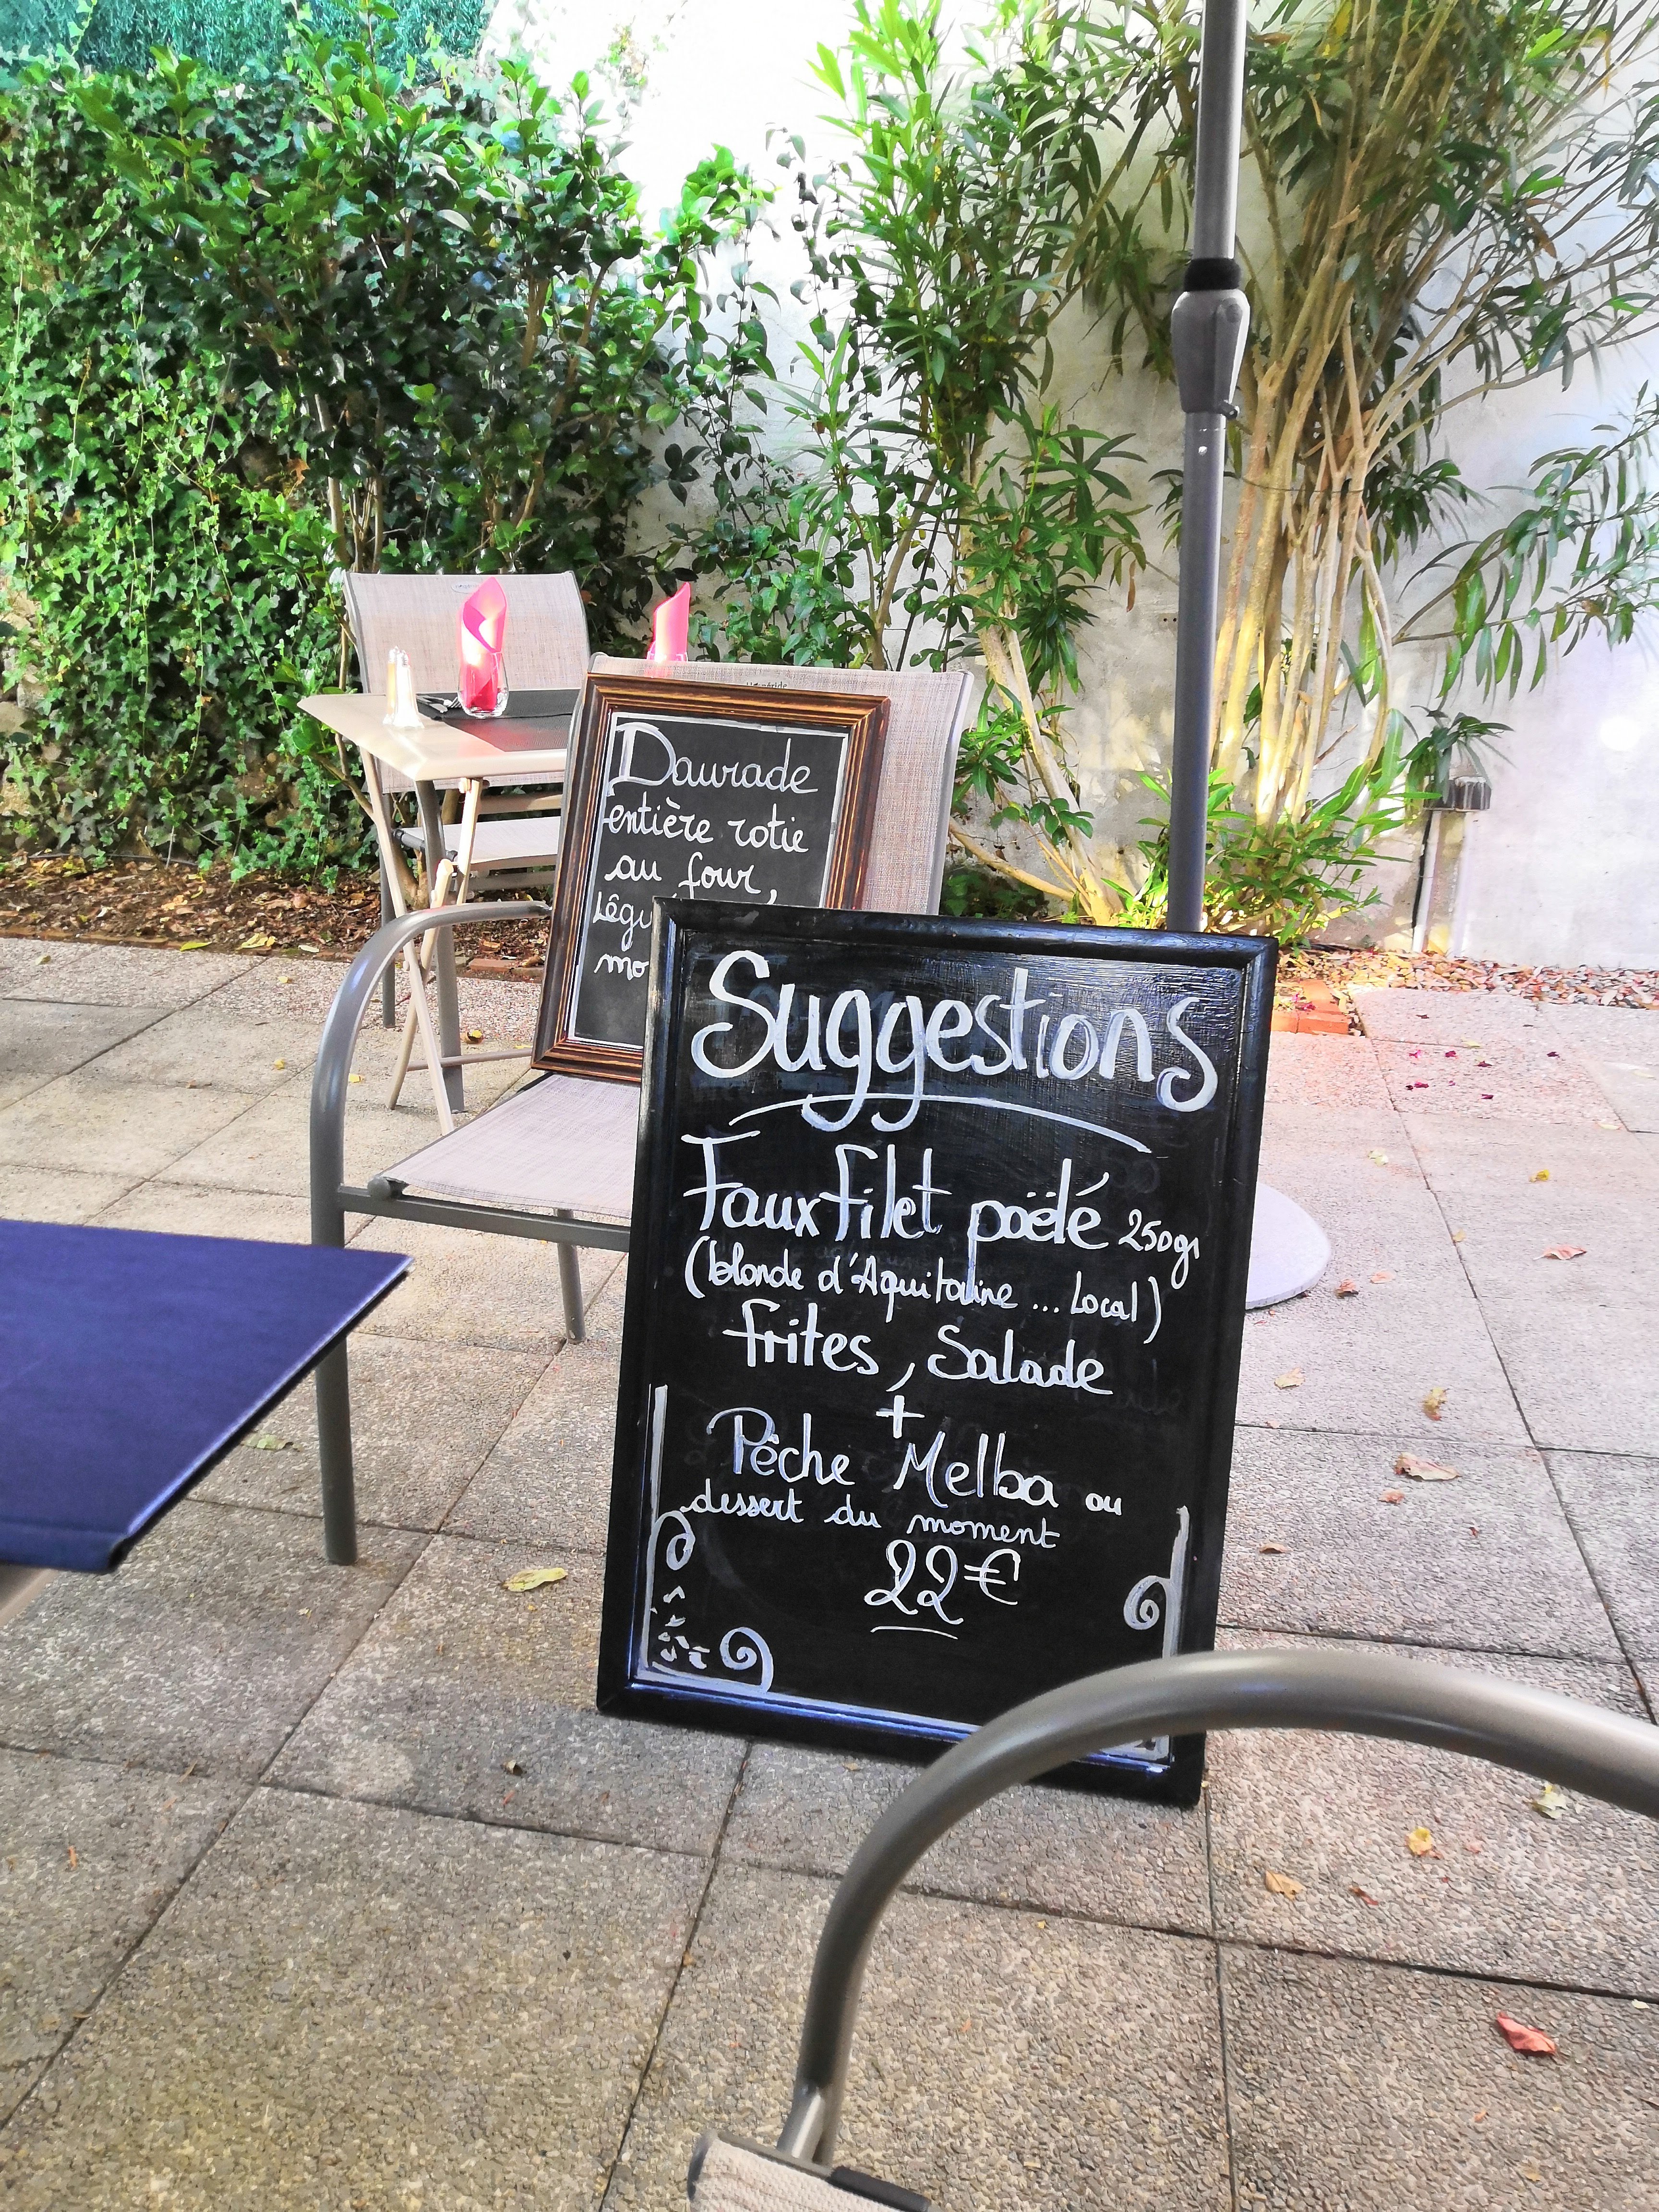 Daurade
entière rotie
au four,
Suggestions
Faux filet poëlé 250gr
(blonde d'Aquitaine ... Local)
frites, Salade
+
Pêche Melba ou
dessert du moment
22€